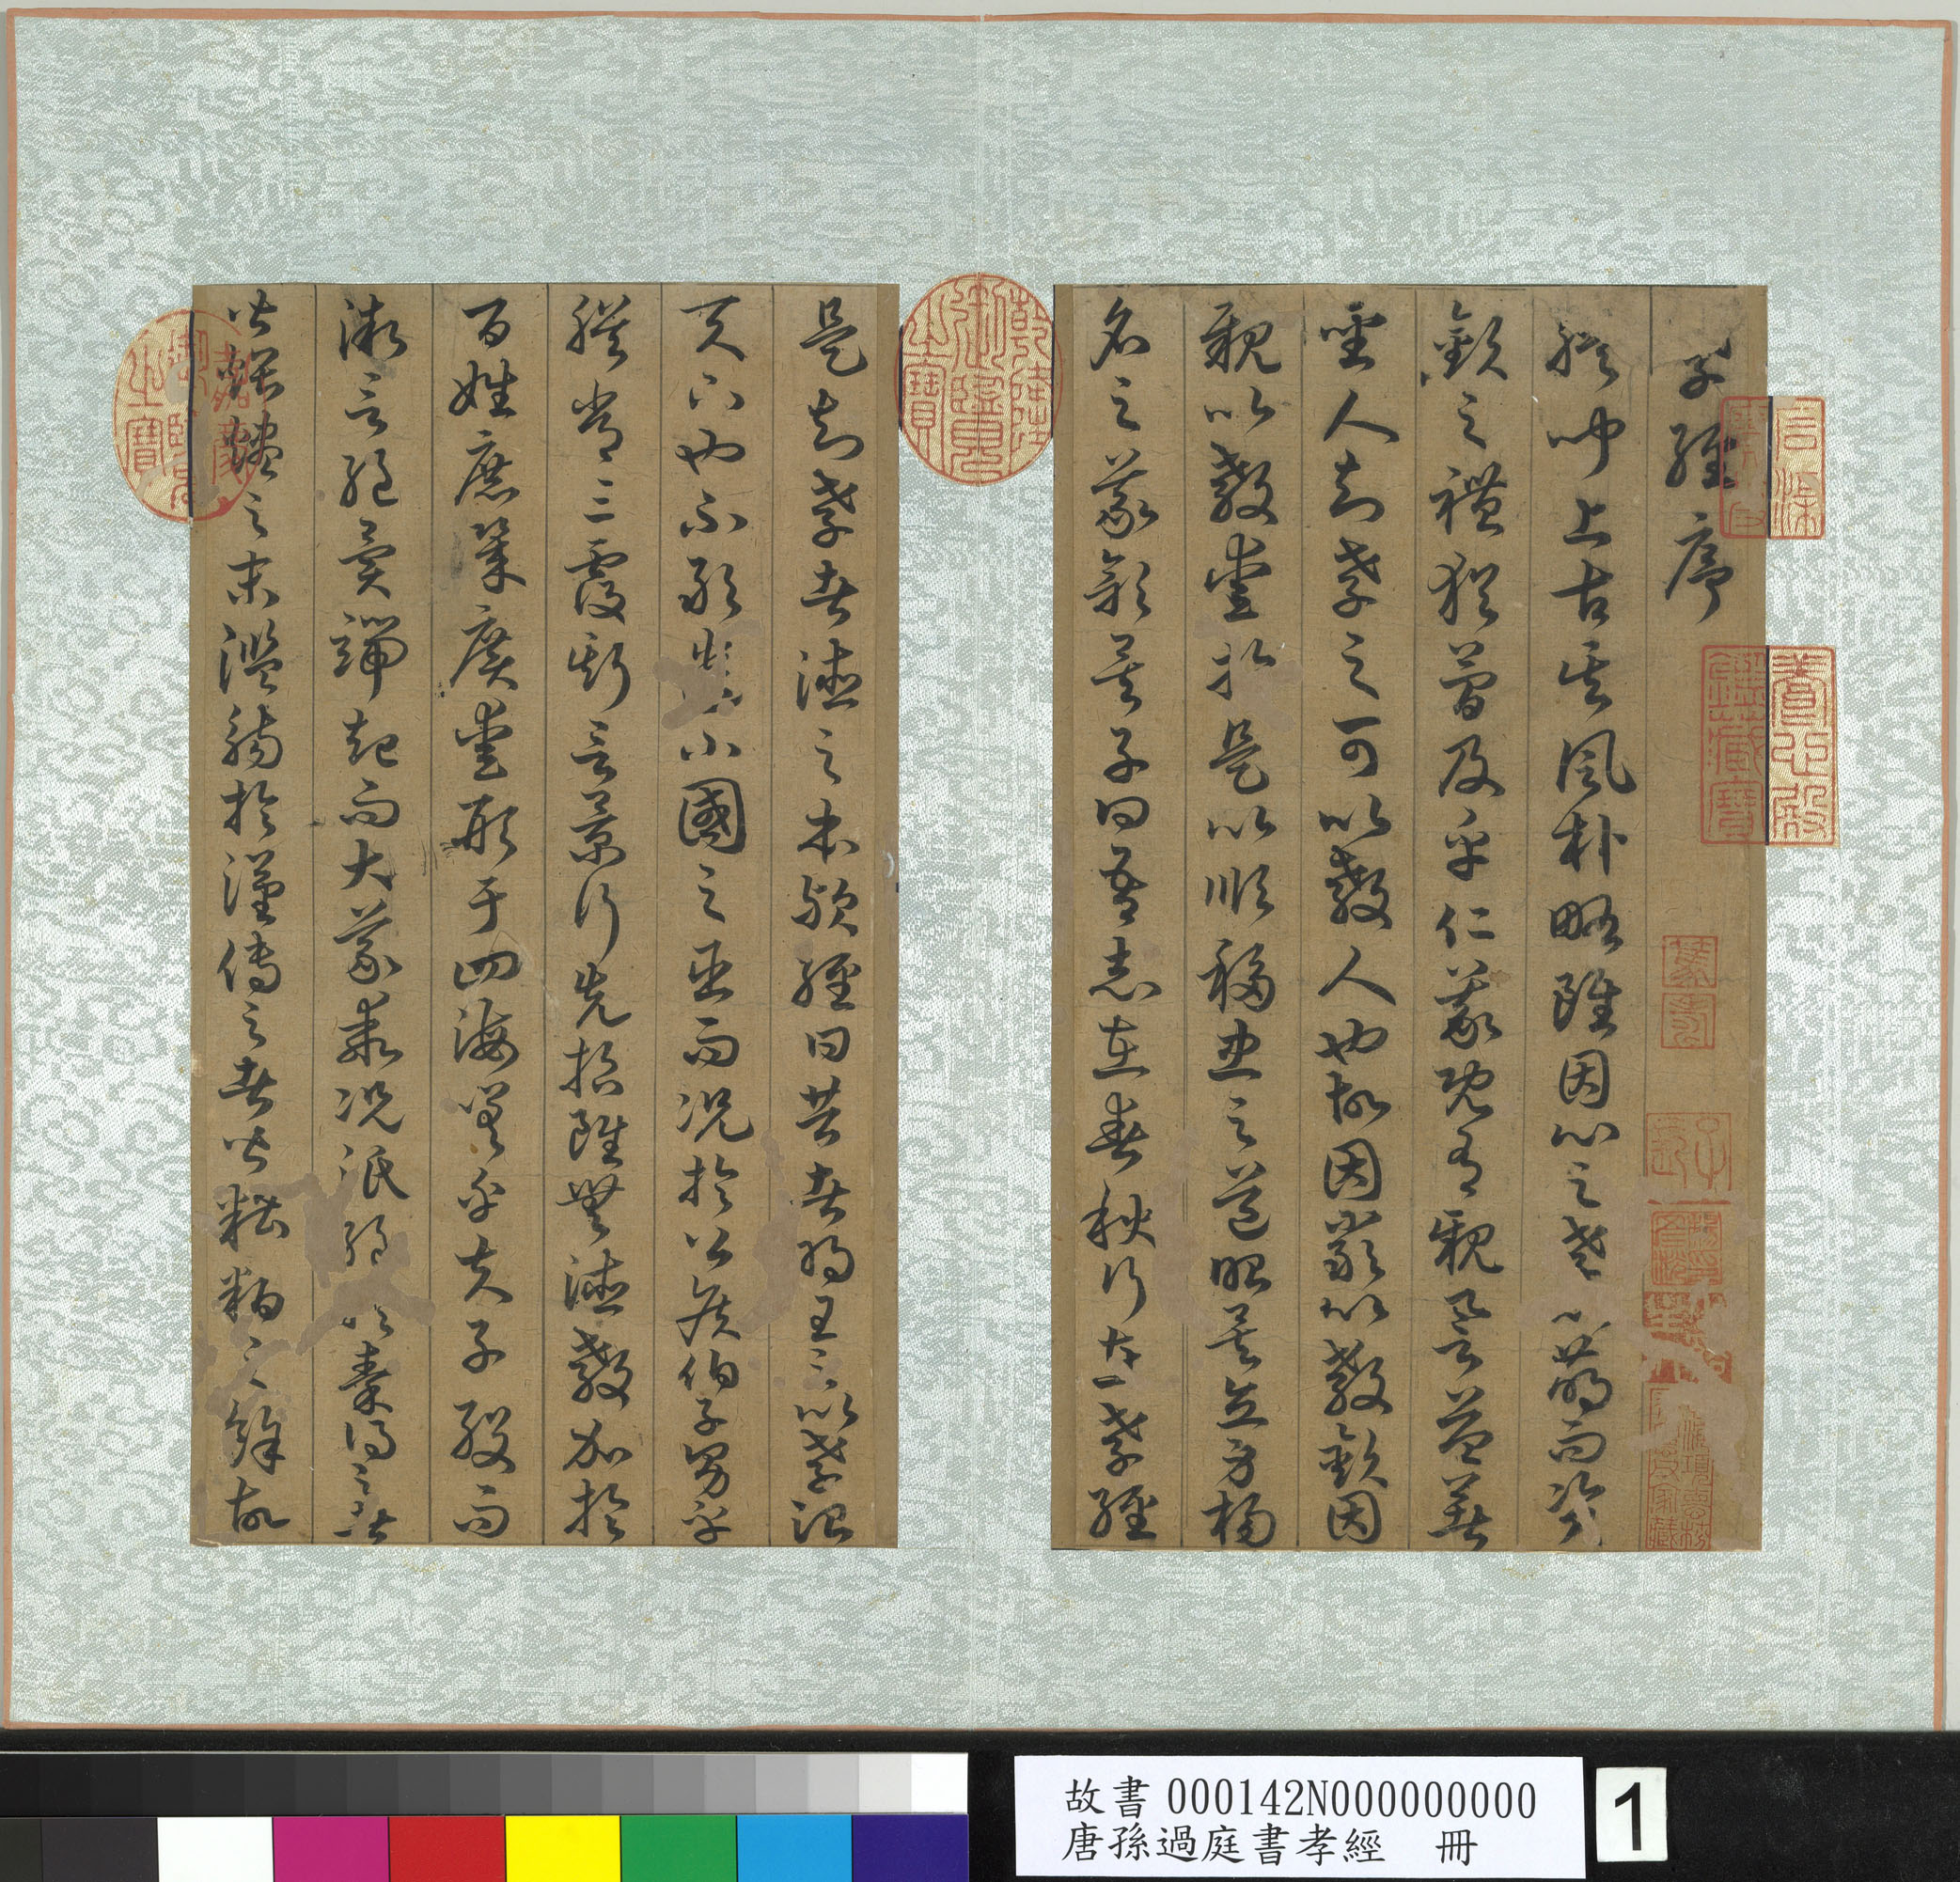 孝經序
朕聞上古其風朴略雖因心之孝以萌而資
敬之禮猶簡及乎仁義既有親譽益著
聖人知孝之可以教人也故因嚴以教敬因
親以教愛於是以順移忠之道昭矣立身揚
名之義彰矣子曰吾志在春秋行在孝經
是知孝者德之本歟經曰昔者明王之以孝理
天下也不敢遺小國之臣而況於公侯伯子男乎
朕嘗三復斯言景行先哲雖無德教加於
百姓庶幾廣愛形于四海嗟乎夫子歿而
微言絕異端起而大義乖況泯絕於秦得之者
皆煨燼之末濫觴於漢傳之者皆糟粕之餘故
石渠寶笈
養心殿鑑藏寶
乾隆御覽之寶
嘉慶御覽之寶
故書 000142N000000000
唐孫過庭書孝經 冊
1